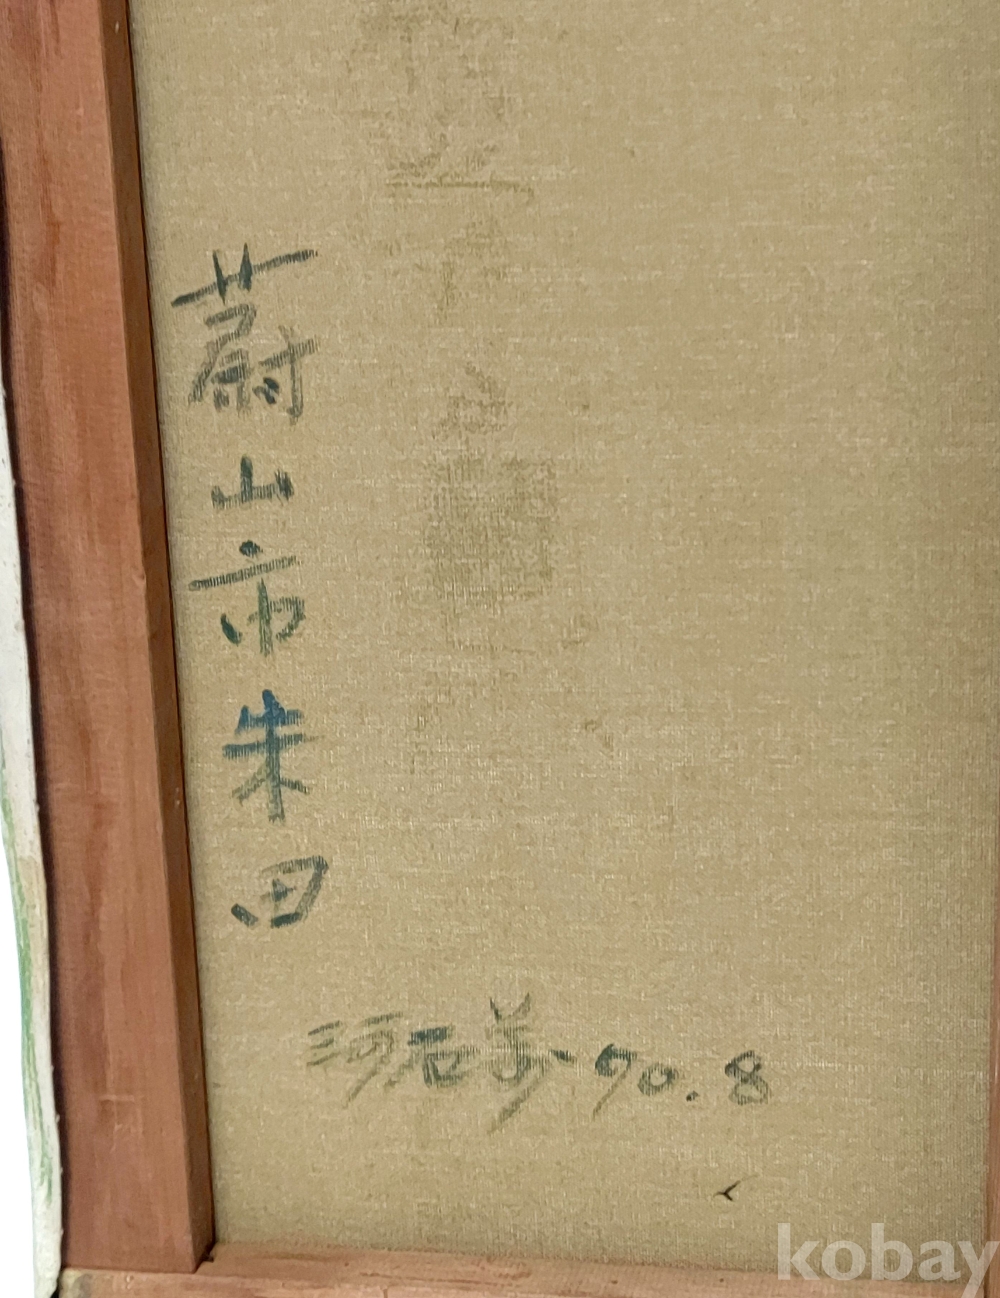 蔚山市朱田
河石 '90.8
kobay